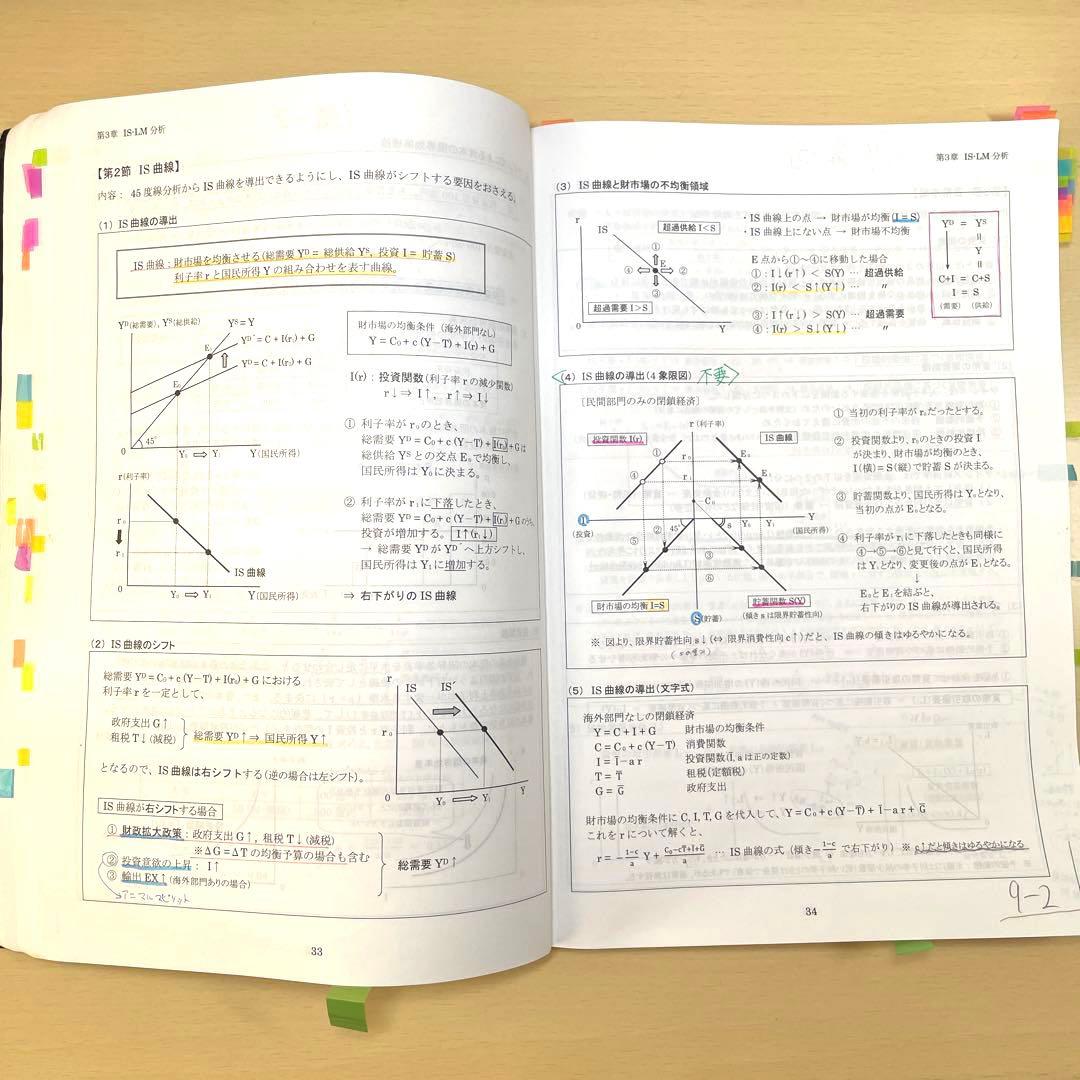 第3章 IS-LM 分析
【第2節 IS 曲線】
内容: 45 度線分析から IS 曲線を導出できるようにし、IS 曲線がシフトする要因をおさえる。
(1) IS 曲線の導出
IS 曲線:財市場を均衡させる(総需要 Yᴰ = 総供給 Yˢ, 投資 I = 貯蓄 S)
利子率 r と国民所得 Y の組み合わせを表す曲線。
Yᴰ(総需要), Yˢ(総供給)
Yˢ=Y
Yᴰ´=C+I(r₁)+G
Yᴰ=C+I(r₀)+G
E₁
E₀
45°
0
Y₀ ⇒ Y₁
Y(国民所得)
r(利子率)
r₀
r₁
IS 曲線
0
Y₀ ⇒ Y₁
Y(国民所得)
財市場の均衡条件(海外部門なし)
Y=C₀+c(Y-T)+I(r)+G
I(r):投資関数(利子率 r の減少関数)
r↓⇒ I↑, r↑⇒ I↓
① 利子率が r₀のとき、
総需要 Yᴰ=C₀+c(Y-T)+I(r₀)+G は
総供給 Yˢ との交点 E₀で均衡し、
国民所得は Y₀ に決まる。
② 利子率が r₁に下落したとき、
総需要 Yᴰ=C₀+c(Y-T)+I(r₁)+G のうち、
投資が増加する。 I↑(r₁↓)
→ 総需要 Yᴰ が Yᴰ´ へ上方シフトし、
国民所得は Y₁に増加する。
⇒ 右下がりの IS 曲線
(2) IS 曲線のシフト
総需要 Yᴰ=C₀+c(Y-T)+I(r₀)+G における
利子率 r を一定として、
政府支出 G↑
租税 T↓(減税)
総需要 Yᴰ↑⇒ 国民所得 Y↑
となるので、IS 曲線は右シフトする(逆の場合は左シフト)。
r
IS
IS´
r₀
0
Y₀ ⇒ Y₁
Y
IS 曲線が右シフトする場合
① 財政拡大政策:政府支出 G↑, 租税 T↓(減税)
※ΔG=ΔT の均衡予算の場合も含む
② 投資意欲の上昇: I↑
③ 輸出 EX↑(海外部門ありの場合)
総需要 Yᴰ↑
→アニマルスピリット
33
第3章 IS-LM 分析
(3) IS 曲線と財市場の不均衡領域
r
IS
超過供給 I<S
①
④ E ②
③
超過需要 I>S
0
Y
・IS 曲線上の点 → 財市場が均衡(I=S)
・IS 曲線上にない点 → 財市場不均衡
E 点から①~④に移動した場合
①:I↓(r↑) < S(Y) … 超過供給
②:I(r) < S↑(Y↑) … 〃
③:I↑(r↓) > S(Y) … 超過需要
④:I(r) > S↓(Y↓) … 〃
Yᴰ = Yˢ
||
Y
||
C+I = C+S
I = S
(需要) (供給)
<(4) IS 曲線の導出(4象限図) 不要>
[民間部門のみの閉鎖経済]
r(利子率)
投資関数 I(r)
IS 曲線
①
④
r₀
r₁
E₀
E₁
C₀
I
(投資)
45°
s
Y₀ Y₁
Y
(国民所得)
②
⑤
③
⑥
財市場の均衡 I=S
S(貯蓄)
貯蓄関数 S(Y)
(傾き s は限界貯蓄性向)
① 当初の利子率が r₀だったとする。
② 投資関数より、r₀のときの投資 I
が決まり、財市場が均衡のとき、
I(横)=S(縦)で貯蓄 S が決まる。
③ 貯蓄関数より、国民所得は Y₀となり、
当初の点が E₀となる。
④ 利子率が r₁に下落したときも同様に
④→⑤→⑥と見て行くと、国民所得
は Y₁となり、変更後の点が E₁となる。
↓
E₀と E₁を結ぶと、
右下がりの IS 曲線が導出される。
※ 図より、限界貯蓄性向 s↓(⇔ 限界消費性向 c↑)だと、IS 曲線の傾きはゆるやかになる。
(5) IS 曲線の導出(文字式)
海外部門なしの閉鎖経済
Y=C+I+G 財市場の均衡条件
C=C₀+c(Y-T) 消費関数
I=Ī-ar 投資関数(Ī, a は正の定数)
T=T̄ 租税(定額税)
G=Ḡ 政府支出
財市場の均衡条件に C, I, T, G を代入して、 Y=C₀+c(Y-T̄)+Ī-ar+Ḡ
これを r について解くと、
r=-(1-c)/a Y+(C₀-cT̄+Ī+Ḡ)/a … IS 曲線の式(傾き-(1-c)/a で右下がり) ※ c↑だと傾きはゆるやかになる
9-2
34